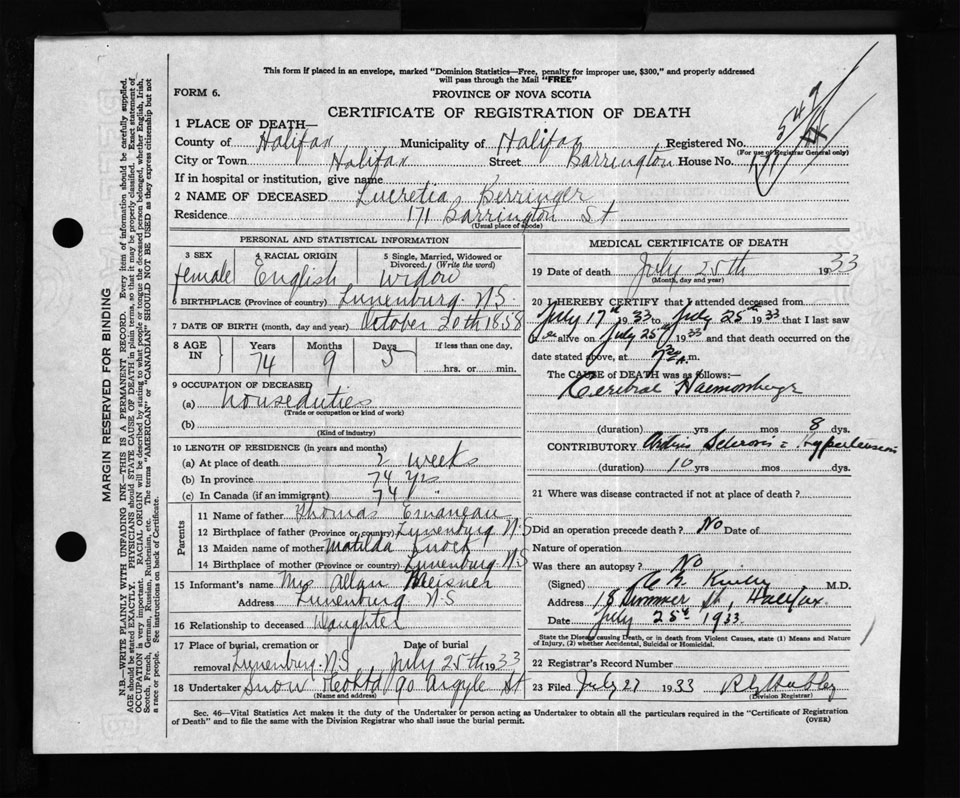 This form if placed in an envelope, marked "Dominion Statistics—Free, penalty for improper use, $300," and properly addressed
will pass through the Mail "FREE"
FORM 6.
PROVINCE OF NOVA SCOTIA
CERTIFICATE OF REGISTRATION OF DEATH
1 PLACE OF DEATH—
County of Halifax Municipality of Halifax Registered No.
(For use of Registrar General only)
City or Town Halifax Street Barrington House No. 171
If in hospital or institution, give name
2 NAME OF DECEASED Lucretia Berringer
Residence 171 Barrington St
(Usual place of abode)
PERSONAL AND STATISTICAL INFORMATION
3 SEX 4 RACIAL ORIGIN 5 Single, Married, Widowed or
Divorced. (Write the word)
female English Widow
6 BIRTHPLACE (Province or country) Lunenburg. N.S.
7 DATE OF BIRTH (month, day and year) October 20th 1858
8 AGE IN Years Months Days If less than one day,
74 9 5 hrs. or min.
9 OCCUPATION OF DECEASED
(a) houseduties
(Trade or occupation or kind of work)
(b)
(Kind of industry)
10 LENGTH OF RESIDENCE (in years and months)
(a) At place of death 2 weeks
(b) In province 74 yrs
(c) In Canada (if an immigrant) 74 "
Parents
11 Name of father Thomas
12 Birthplace of father (Province or country) Lunenburg N.S
13 Maiden name of mother Matilda
14 Birthplace of mother (Province or country) Lunenburg N.S
15 Informant's name Mrs Allan Meisner
Address Lunenburg N S
16 Relationship to deceased Daughter
17 Place of burial, cremation or removal Date of burial
Lunenburg. N S July 25th 1933
18 Undertaker Snow 90 Argyle St
(Name and address)
MEDICAL CERTIFICATE OF DEATH
19 Date of death July 25th 1933
(Month, day and year)
20 I HEREBY CERTIFY that I attended deceased from
July 17th 1933 to July 25th 1933 that I last saw
her alive on July 25th 1933 and that death occurred on the
date stated above, at m.
The CAUSE of DEATH was as follows:—
Cerebral Haemorrhage
(duration) yrs mos 8 dys.
CONTRIBUTORY Sclerosis Hypertension
(duration) 10 yrs mos dys.
21 Where was disease contracted if not at place of death?
Did an operation precede death? No Date of
Nature of operation
Was there an autopsy? No
(Signed) M.D.
Address 18 Summer St, Halifax
Date July 25th 1933.
State the Disease causing Death, or in death from Violent Causes, state (1) Means and Nature
of Injury, (2) whether Accidental, Suicidal or Homicidal.
22 Registrar's Record Number
23 Filed July 27 1933
(Division Registrar)
Sec. 46—Vital Statistics Act makes it the duty of the Undertaker or person acting as Undertaker to obtain all the particulars required in the "Certificate of Registration
of Death" and to file the same with the Division Registrar who shall issue the burial permit.
(OVER)
MARGIN RESERVED FOR BINDING
N.B.—WRITE PLAINLY WITH UNFADING INK—THIS IS A PERMANENT RECORD. Every item of information should be carefully supplied.
AGE should be stated EXACTLY. PHYSICIANS should STATE CAUSE OF DEATH in plain terms, so that it may be properly classified. Exact statement of
OCCUPATION is very important. RACIAL ORIGIN will be described by stating to what people or tongue the deceased person belonged, whether English, Irish,
Scotch, French, German, Russian, Ruthenian, etc. The terms "AMERICAN" or "CANADIAN" SHOULD NOT BE USED as they express citizenship but not
a race or people. See instructions on back of Certificate.